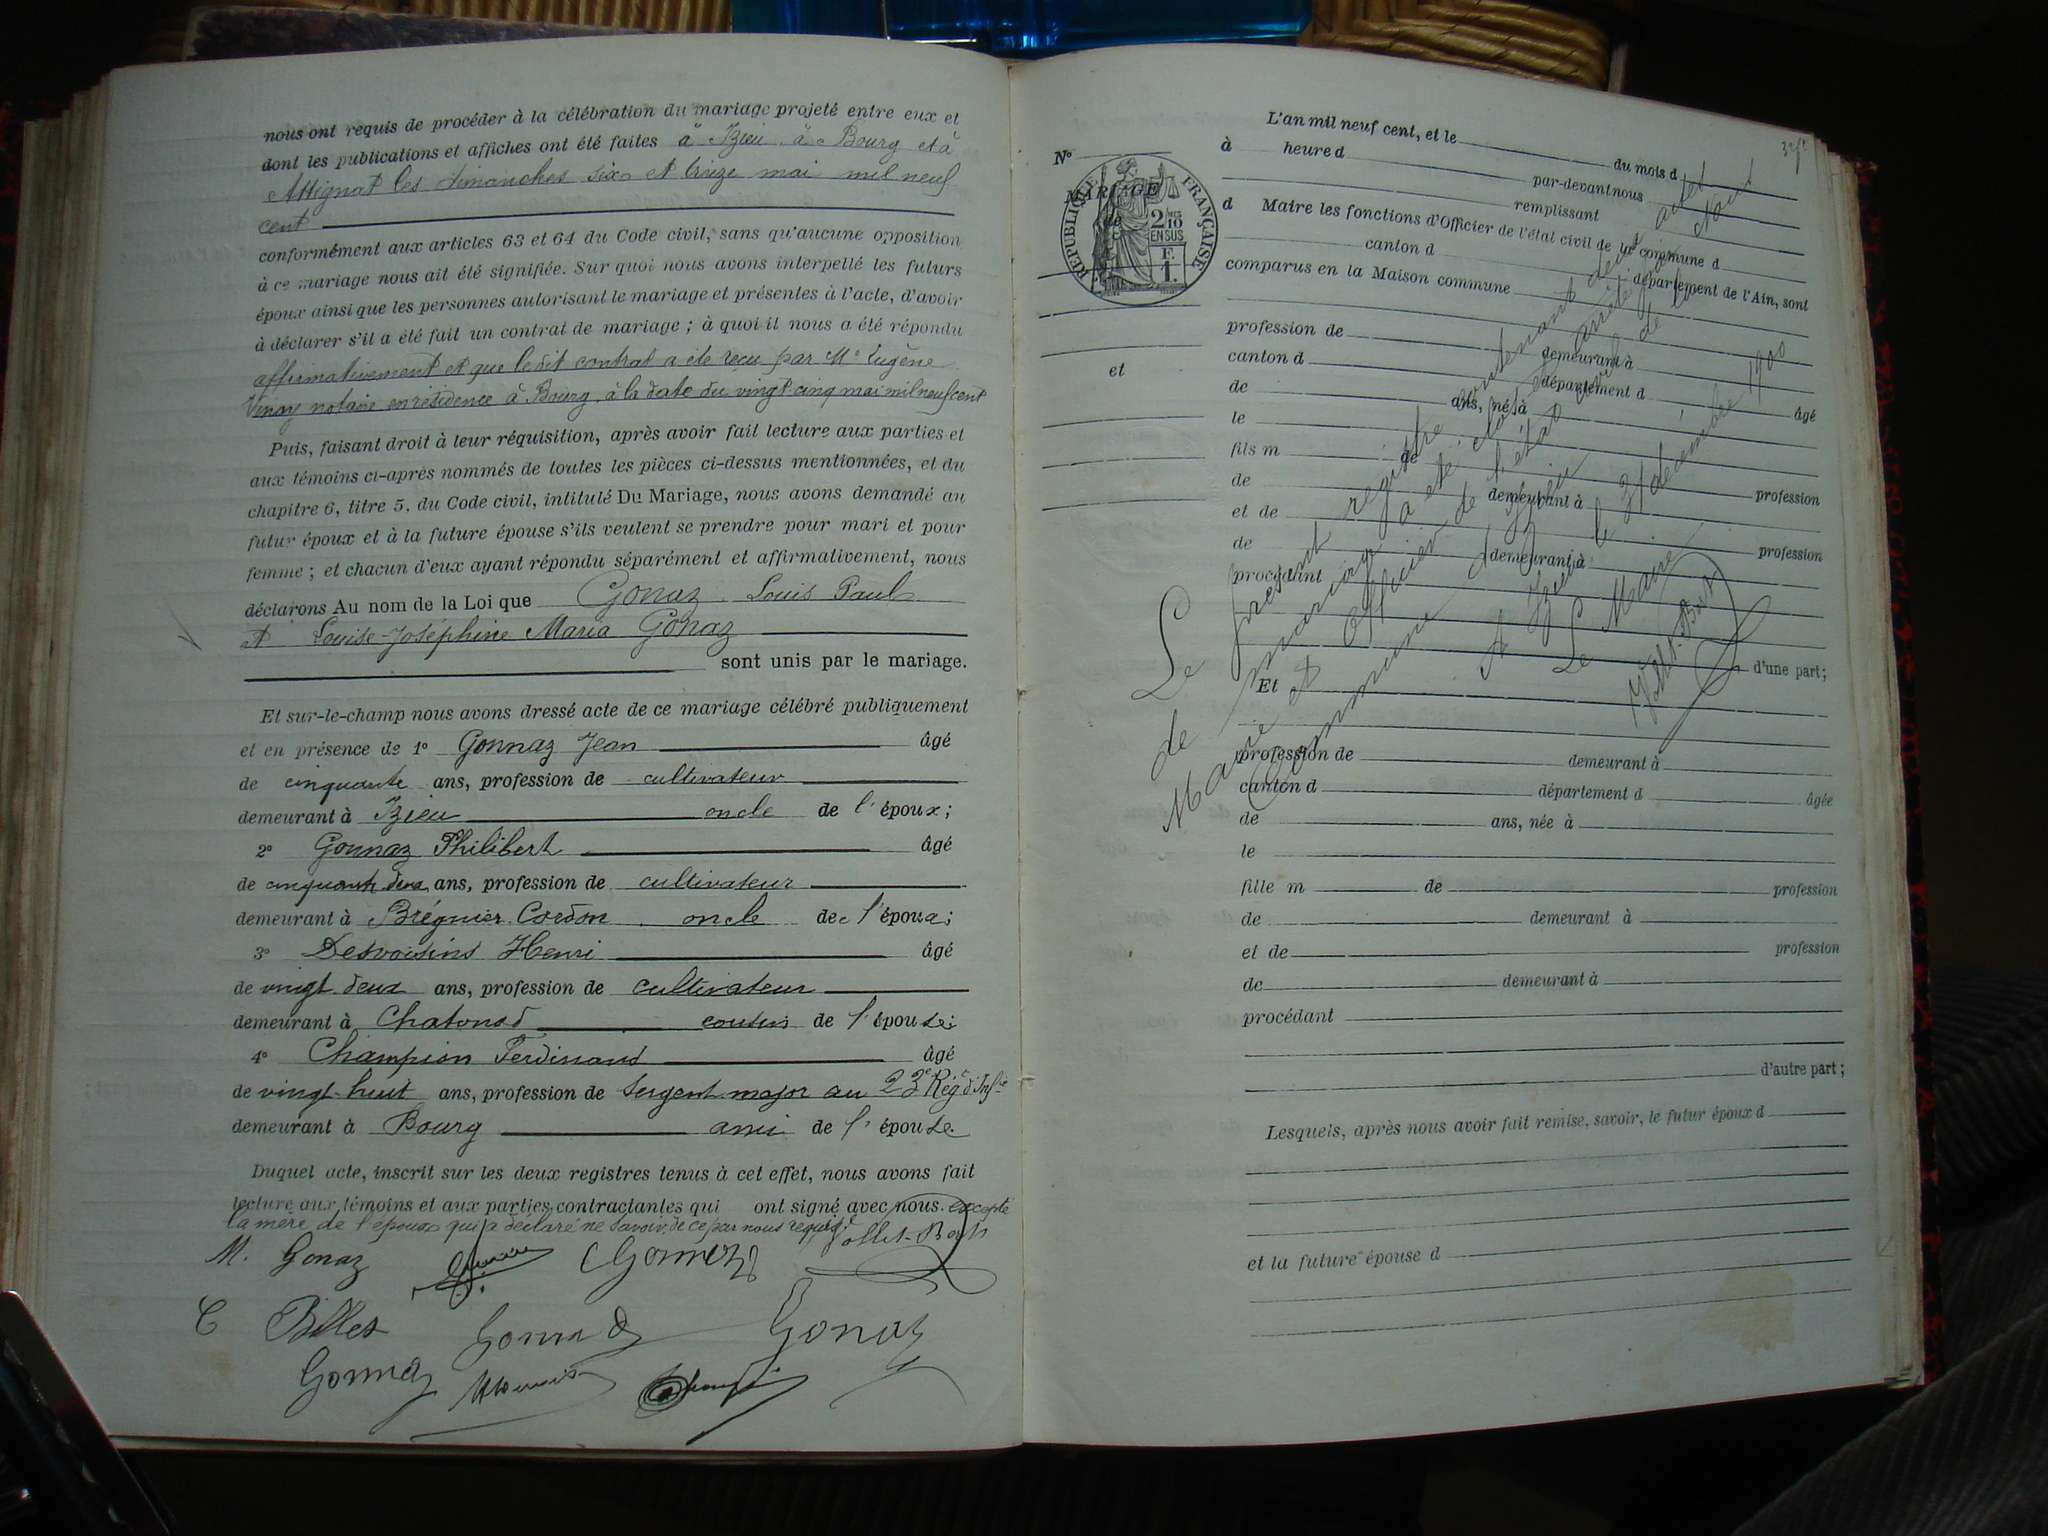 nous ont requis de procéder à la célébration du mariage projeté entre eux et
dont les publications et affiches ont été faites à Izieu à Bourg et à
Attignat les dimanches six et treize mai mil neuf
cent
conformément aux articles 63 et 64 du Code civil, sans qu'aucune opposition
à ce mariage nous ait été signifiée. Sur quoi nous avons interpellé les futurs
époux ainsi que les personnes autorisant le mariage et présentes à l'acte, d'avoir
à déclarer s'il a été fait un contrat de mariage ; à quoi il nous a été répondu
affirmativement et que ledit contrat a été reçu par Me Eugène
Vinay notaire en résidence à Bourg, à la date du vingt cinq mai mil neuf cent
Puis, faisant droit à leur réquisition, après avoir fait lecture aux parties et
aux témoins ci-après nommés de toutes les pièces ci-dessus mentionnées, et du
chapitre 6, titre 5, du Code civil, intitulé Du Mariage, nous avons demandé au
futur époux et à la future épouse s'ils veulent se prendre pour mari et pour
femme ; et chacun d'eux ayant répondu séparément et affirmativement, nous
déclarons Au nom de la Loi que Gonaz Louis Paul
et Louise-Joséphine Maria Gonaz
sont unis par le mariage.
Et sur-le-champ nous avons dressé acte de ce mariage célébré publiquement
et en présence de 1° Gonnaz Jean âgé
de cinquante ans, profession de cultivateur
demeurant à Izieu oncle de l'époux ;
2° Gonnaz Philibert âgé
de cinquante deux ans, profession de cultivateur
demeurant à Brégnier-Cordon oncle de l'époux ;
3° Desvoisins Henri âgé
de vingt deux ans, profession de cultivateur
demeurant à Chatonod cousin de l'épouse ;
4° Champion Ferdinand âgé
de vingt-huit ans, profession de sergent-major au 23e Régt d'Infie
demeurant à Bourg ami de l'épouse.
Duquel acte, inscrit sur les deux registres tenus à cet effet, nous avons fait
lecture aux témoins et aux parties contractantes qui ont signé avec nous. excepté
la mère de l'époux qui a déclaré ne savoir, de ce par nous requise
M. Gonaz Gonnaz
C Billet Gonnaz Gonaz
Gonnaz
L'an mil neuf cent, et le du mois d
N° à heure d par-devant nous
MARIAGE
de
RÉPUBLIQUE FRANÇAISE
2/10 EN SUS
F. 1
remplissant
d Maire les fonctions d'Officier de l'état civil de la commune d
canton d département de l'Ain, sont
comparus en la Maison commune
profession de demeurant à
et
canton d département d âgé
de ans, né à
le
fils m de
de demeurant à profession
et de
de demeurant à profession
procédant
d'une part ;
Et
profession de demeurant à
canton d département d âgée
de ans, née à
le
fille m de profession
de demeurant à
et de profession
de demeurant à
procédant
d'autre part ;
Lesquels, après nous avoir fait remise, savoir, le futur époux d
et la future épouse d
Le présent registre contenant
de mariage a été clos et arrêté
Maire et Officier de l'état civil de la
Commune d'Izieu
A Izieu le 31 décembre 1900
Le Maire